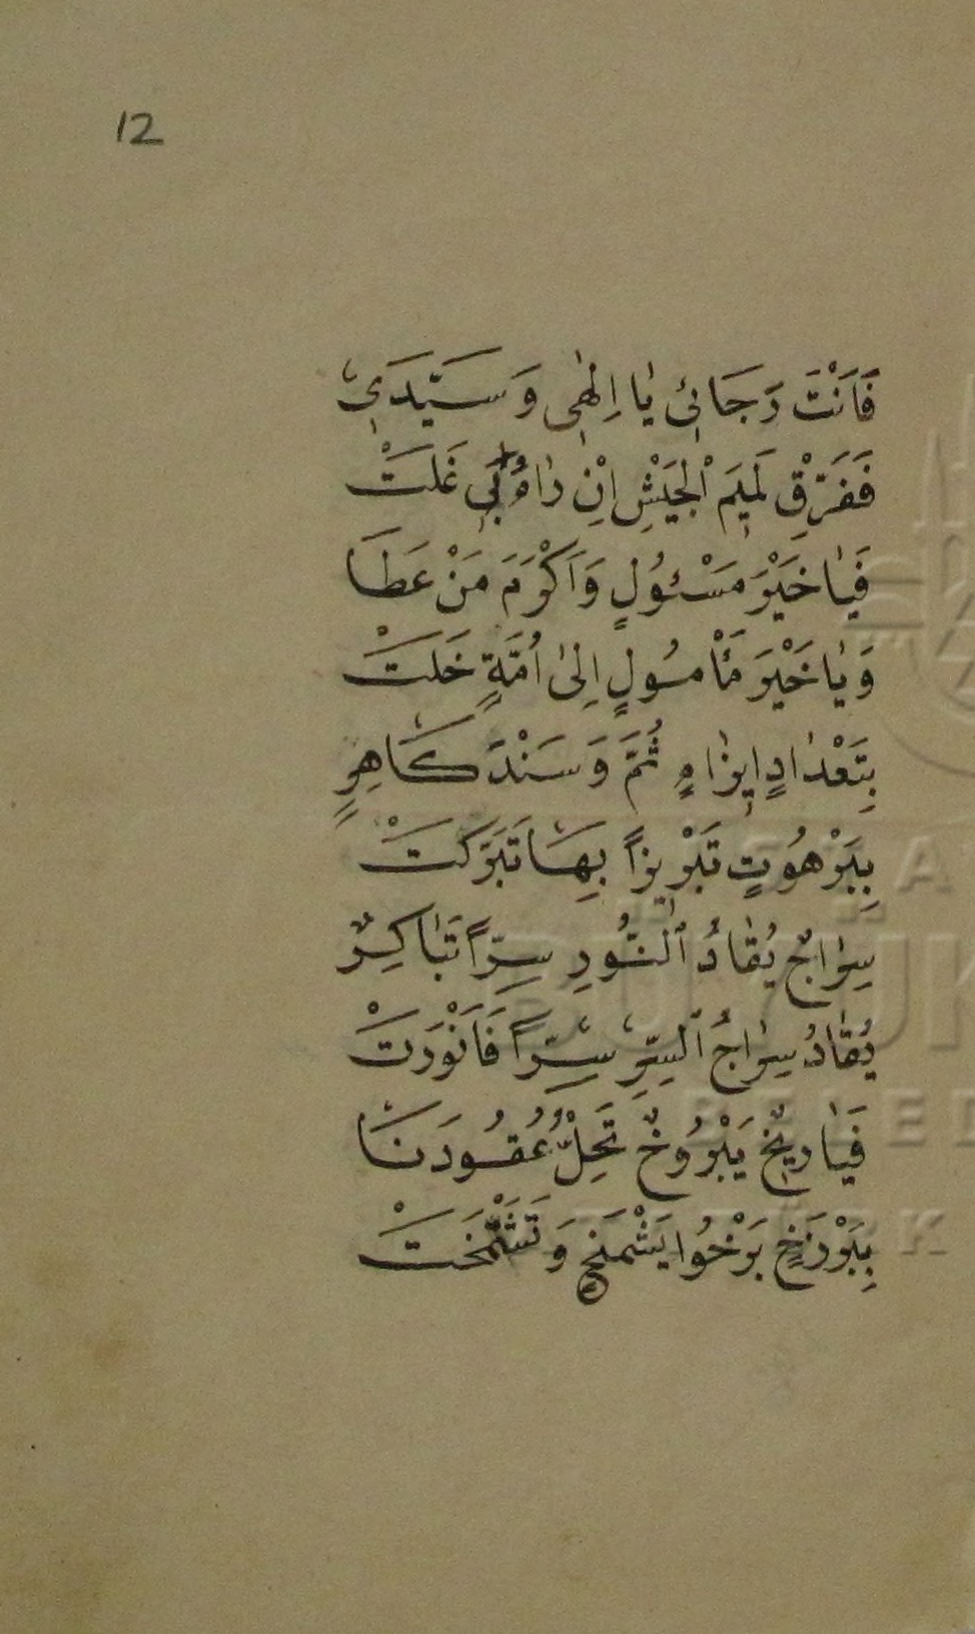 12
فَاَنْتَ رَجَائ۪ي يَا اِلٰه۪ي وَ سَيِّدَي۪
فَفَرِّقْ لَم۪يَمَ ٱلْجَيْشِ اِنْ رَامُ ب۪ي غَلَتْ
فَيَا خَيْرَ مَسْئُولٍ وَ اَكْرَمَ مَنْ عَطَا
وَ يَا خَيْرَ مَأْمُولٍ اِلٰى اُمَّةٍ خَلَتْ
بِتَعْدَادٍ ا۪بْرَامٍ ثُمَّ وَ سَنْدَ كَاهِرٍ
بِبَرْهُوتٍ تَبْر۪يزاً بِهَا تَبَرَّكَتْ
سِرَاجٌ يُقَادُ ٱلنُّورِ سِرّاً تَبَاكِرٌ
يُقَادُ سِرَاجُ ٱلسِّرِّ سِرّاً فَاَنْوَرَتْ
فَيَا ر۪يخٌ يَبْرُوخٌ تَحِلُّ عُقُودَنَا
بِبَرْزَخٍ بَرْخُوا يَشْمَخٍ وَ تَشَمَّخَتْ